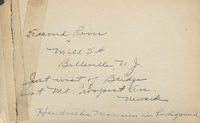 Second River
Mill St
Belleville N J
Just west of Bridge
at Mt. Prospect Ave.
Newark
Hendricks Mansion in background